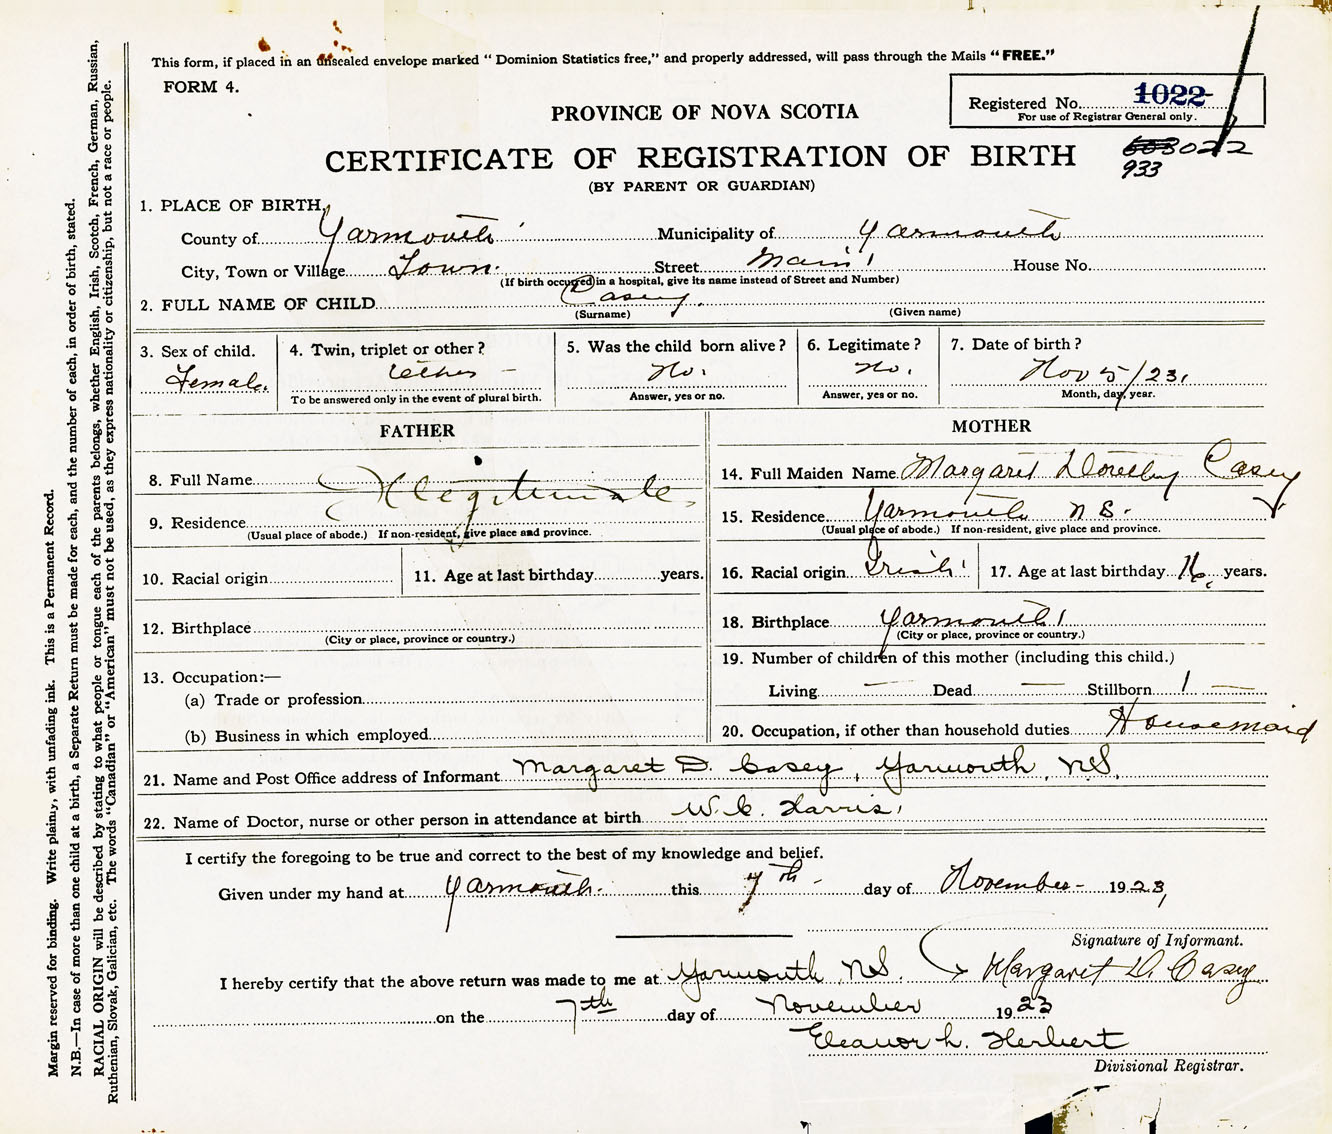 This form, if placed in an unsealed envelope marked "Dominion Statistics free," and properly addressed, will pass through the Mails "FREE."
FORM 4.
Registered No. 1022
For use of Registrar General only.
PROVINCE OF NOVA SCOTIA
CERTIFICATE OF REGISTRATION OF BIRTH
933
(BY PARENT OR GUARDIAN)
1. PLACE OF BIRTH,
County of Yarmouth Municipality of Yarmouth
City, Town or Village Town. Street Main House No.
(If birth occurred in a hospital, give its name instead of Street and Number)
2. FULL NAME OF CHILD Casey.
(Surname) (Given name)
3. Sex of child. 4. Twin, triplet or other? 5. Was the child born alive? 6. Legitimate? 7. Date of birth?
Female. No. No. Nov 5/23.
To be answered only in the event of plural birth. Answer, yes or no. Answer, yes or no. Month, day, year.
FATHER MOTHER
8. Full Name Illegitimate 14. Full Maiden Name Margaret Dorothy Casey
9. Residence 15. Residence Yarmouth N.S.
(Usual place of abode.) If non-resident, give place and province. (Usual place of abode.) If non-resident, give place and province.
10. Racial origin 11. Age at last birthday years. 16. Racial origin Irish 17. Age at last birthday 16 years.
12. Birthplace 18. Birthplace Yarmouth
(City or place, province or country.) (City or place, province or country.)
19. Number of children of this mother (including this child.)
13. Occupation:—
(a) Trade or profession Living — Dead — Stillborn 1 —
(b) Business in which employed 20. Occupation, if other than household duties Housemaid
21. Name and Post Office address of Informant Margaret D. Casey, Yarmouth, N.S.
22. Name of Doctor, nurse or other person in attendance at birth W.C. Harris
I certify the foregoing to be true and correct to the best of my knowledge and belief.
Given under my hand at Yarmouth. this 7th day of November 1923,
Signature of Informant.
I hereby certify that the above return was made to me at Yarmouth, N.S. Margaret D. Casey
on the 7th day of November 1923
Eleanor L. Herbert
Divisional Registrar.
Margin reserved for binding. Write plainly, with unfading ink. This is a Permanent Record.
N.B.—In case of more than one child at a birth, a Separate Return must be made for each, and the number of each, in order of birth, stated.
RACIAL ORIGIN will be described by stating to what people or tongue each of the parents belongs, whether English, Irish, Scotch, French, German, Russian,
Ruthenian, Slovak, Galician, etc. The words "Canadian" or "American" must not be used, as they express nationality or citizenship, but not a race or people.